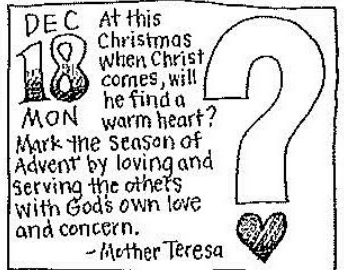 DEC
18
MON
At this
Christmas
when Christ
comes, will
he find a
warm heart?
Mark the season of
Advent by loving and
serving the others
with God's own love
and concern.
-Mother Teresa
?